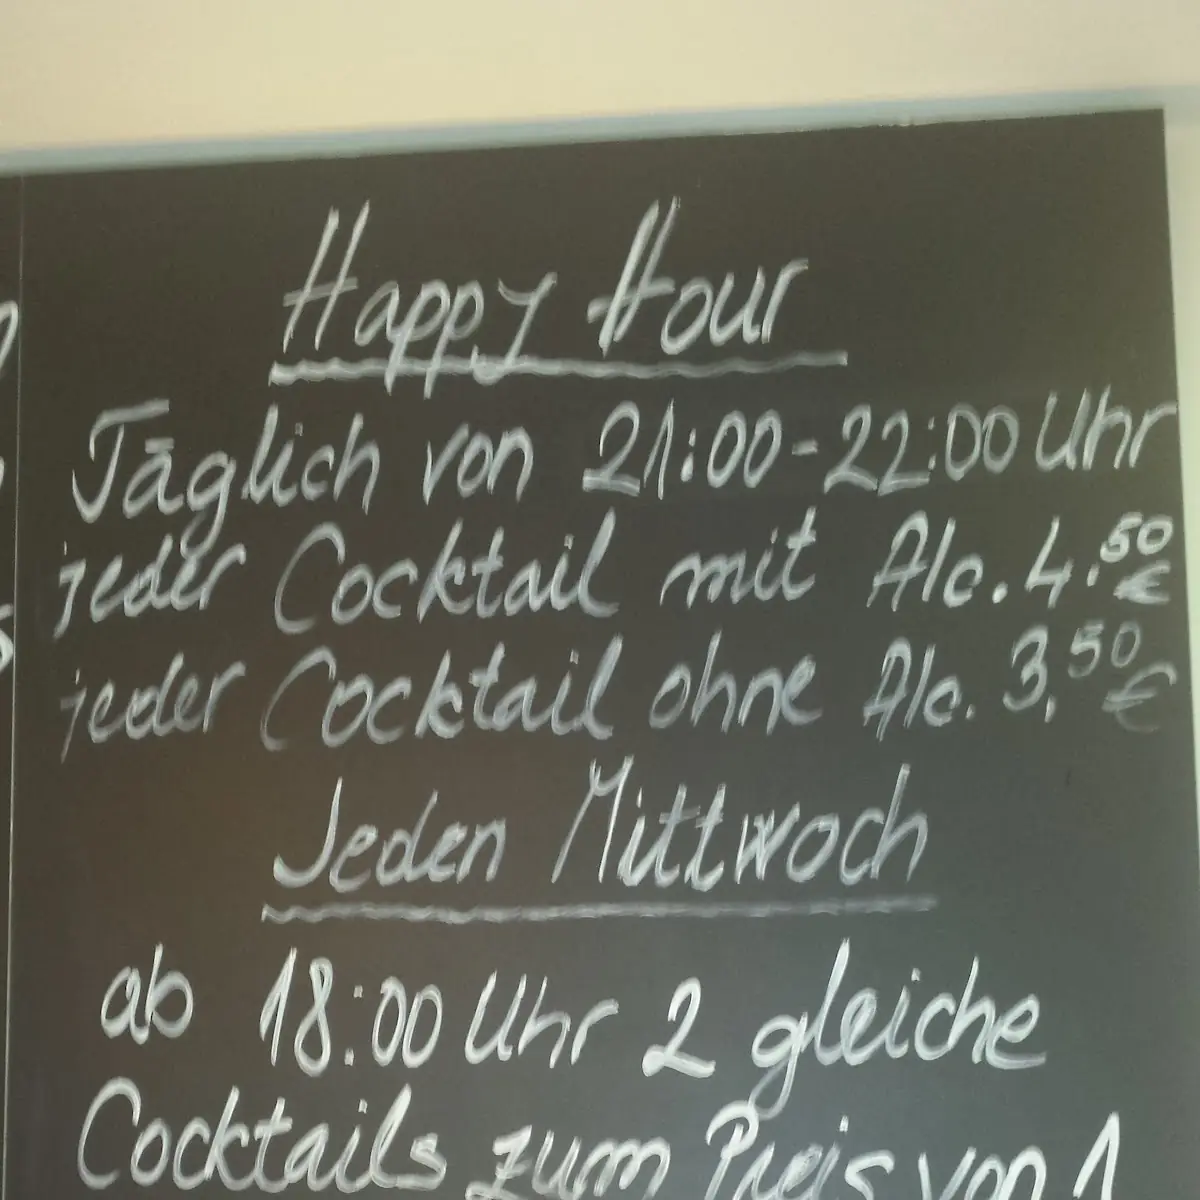 Happy Hour
Täglich von 21:00-22:00 Uhr
jeder Cocktail mit Alc. 4.50 €
jeder Cocktail ohne Alc. 3,50 €
Jeden Mittwoch
ab 18:00 Uhr 2 gleiche
Cocktails zum Preis von 1